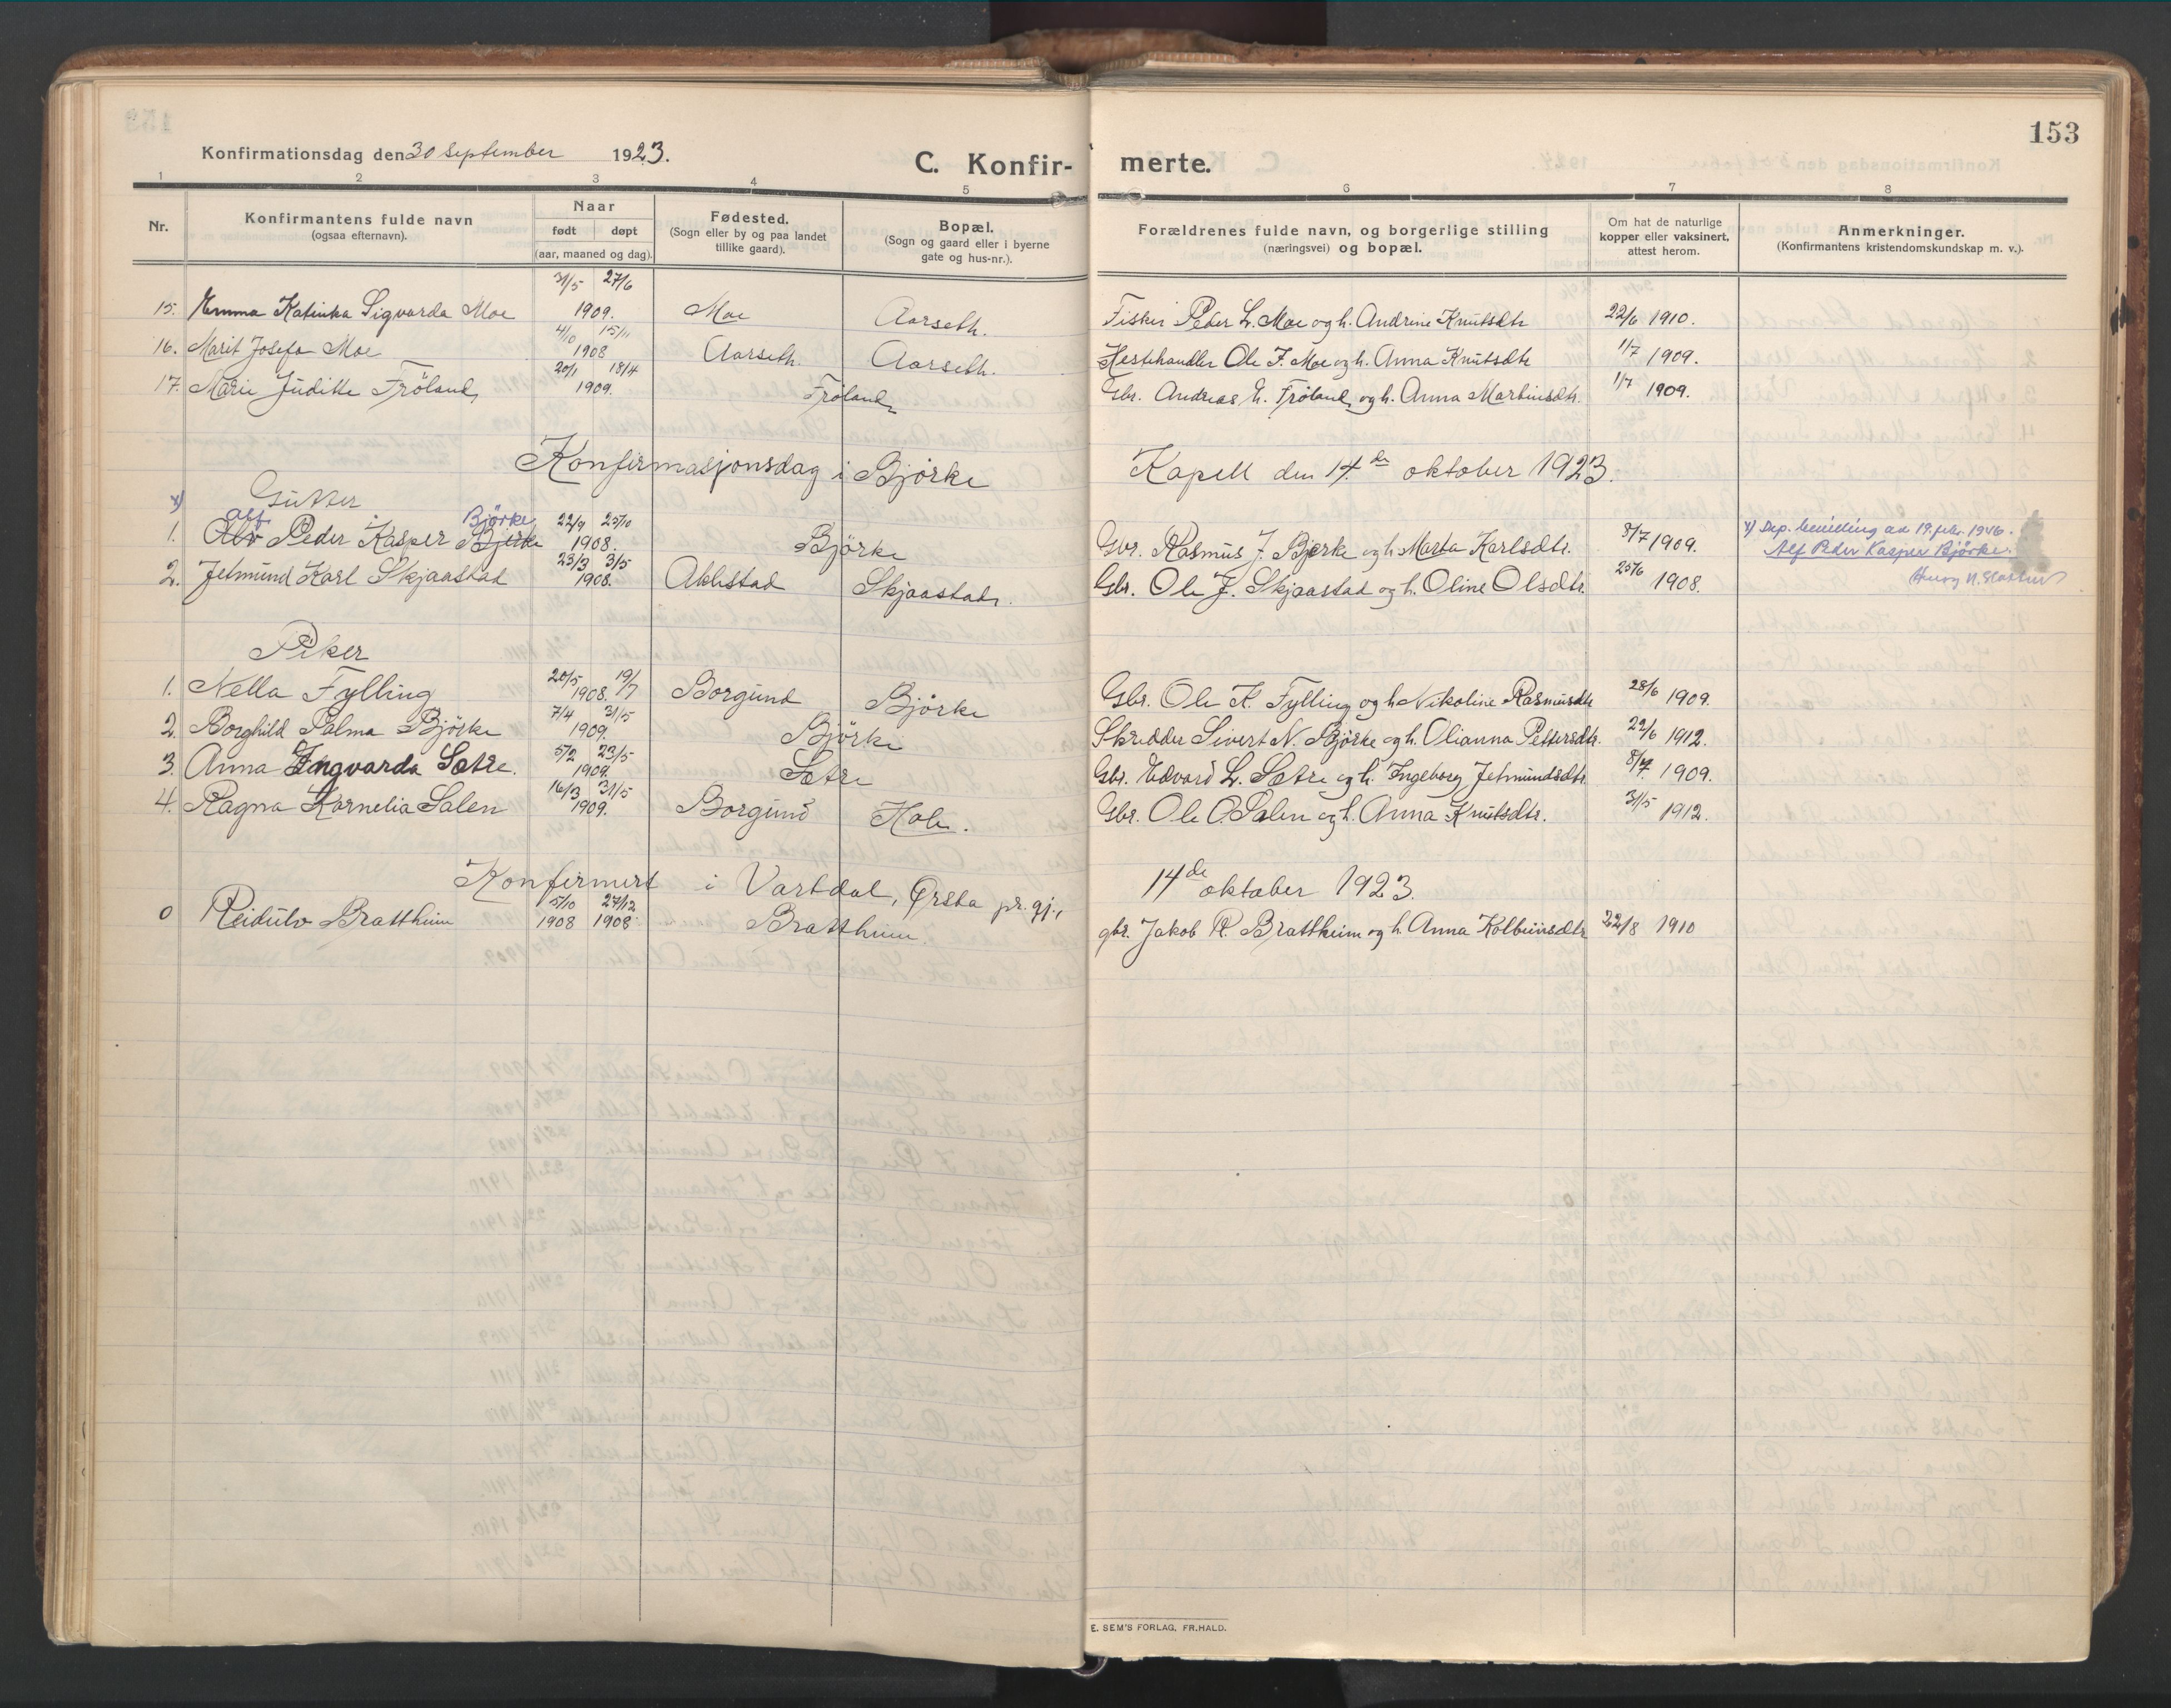 153
Konfirmationsdag den 30 September 1923.
C. Konfir- merte.
1 2 3 4 5 6 7 8
Nr.
Konfirmantens fulde navn
(ogsaa efternavn).
Naar
født døpt
(aar, maaned og dag).
Fødested.
(Sogn eller by og paa landet
tillike gaard).
Bopæl.
(Sogn og gaard eller i byerne
gate og hus-nr.).
Forældrenes fulde navn, og borgerlige stilling
(næringsvei) og bopæl.
Om hat de naturlige
kopper eller vaksinert,
attest herom.
Anmerkninger.
(Konfirmantens kristendomskundskap m. v.).
15. Emma Katinka Sigvarda Moe 31/5 27/6 1909. Moe Aarseth. Fisker Peder L. Moe og h. Andrine Knutsdtr 22/6 1910.
16. Marit Josefa Moe 4/10 15/11 1908 Aarseth. Aarseth. Hestehandler Ole F. Moe og h. Anna Knutsdtr 1/7 1909.
17. Marie Juditte Fröland 20/1 18/4 1909. Fröland Gbr. Andreas E. Fröland og h. Anna Martinsdtr. 1/7 1909.
Konfirmasjonsdag i Björke Kapell den 14de oktober 1923.
Gutter
x) Alf Björke
1. Alv Peder Kasper Bjerke 22/9 25/10 1908. Björke Gbr. Rasmus J. Bjørke og h. Marta Karlsdtr. 8/7 1909. x) Dep. bevilling av 19. febr. 1946.
Alf Peder Kasper Björke.
2. Jetmund Karl Skjaastad 23/3 3/5 1908. Aklestad Skjaastad. Gbr. Ole J. Skjaastad og h. Oline Olsdtr. 25/6 1908.
Piker
1. Nella Fylling 20/5 19/7 1908 Borgund Björke Gbr. Ole K. Fylling og h. Nikoline Rasmusdtr 28/6 1909.
2. Borghild Palma Björke 7/4 31/5 1909. Björke Skredder Sivert N. Björke og h. Olianna Pettersdtr. 22/6 1912.
3. Anna Ingvarda Sætre. 5/2 23/5 1909. Sætre Gbr. Edvard L. Sætre og h. Ingeborg Jetmundsdtr. 8/7 1909.
4. Ragna Kornelia Salen 16/3 31/5 1909. Borgund Hole. Gbr. Ole O. Salen og h. Anna Knutsdtr. 31/5 1912.
Konfirmert i Vartdal, Ørsta pr.gj., 14de oktober 1923.
0 Reidulv Brattheim 5/10 1908 27/12 1908 Brattheim. gbr. Jakob R. Brattheim og h. Anna Kolbeinsdtr 22/8 1910
E. SEM'S FORLAG, FR.HALD.